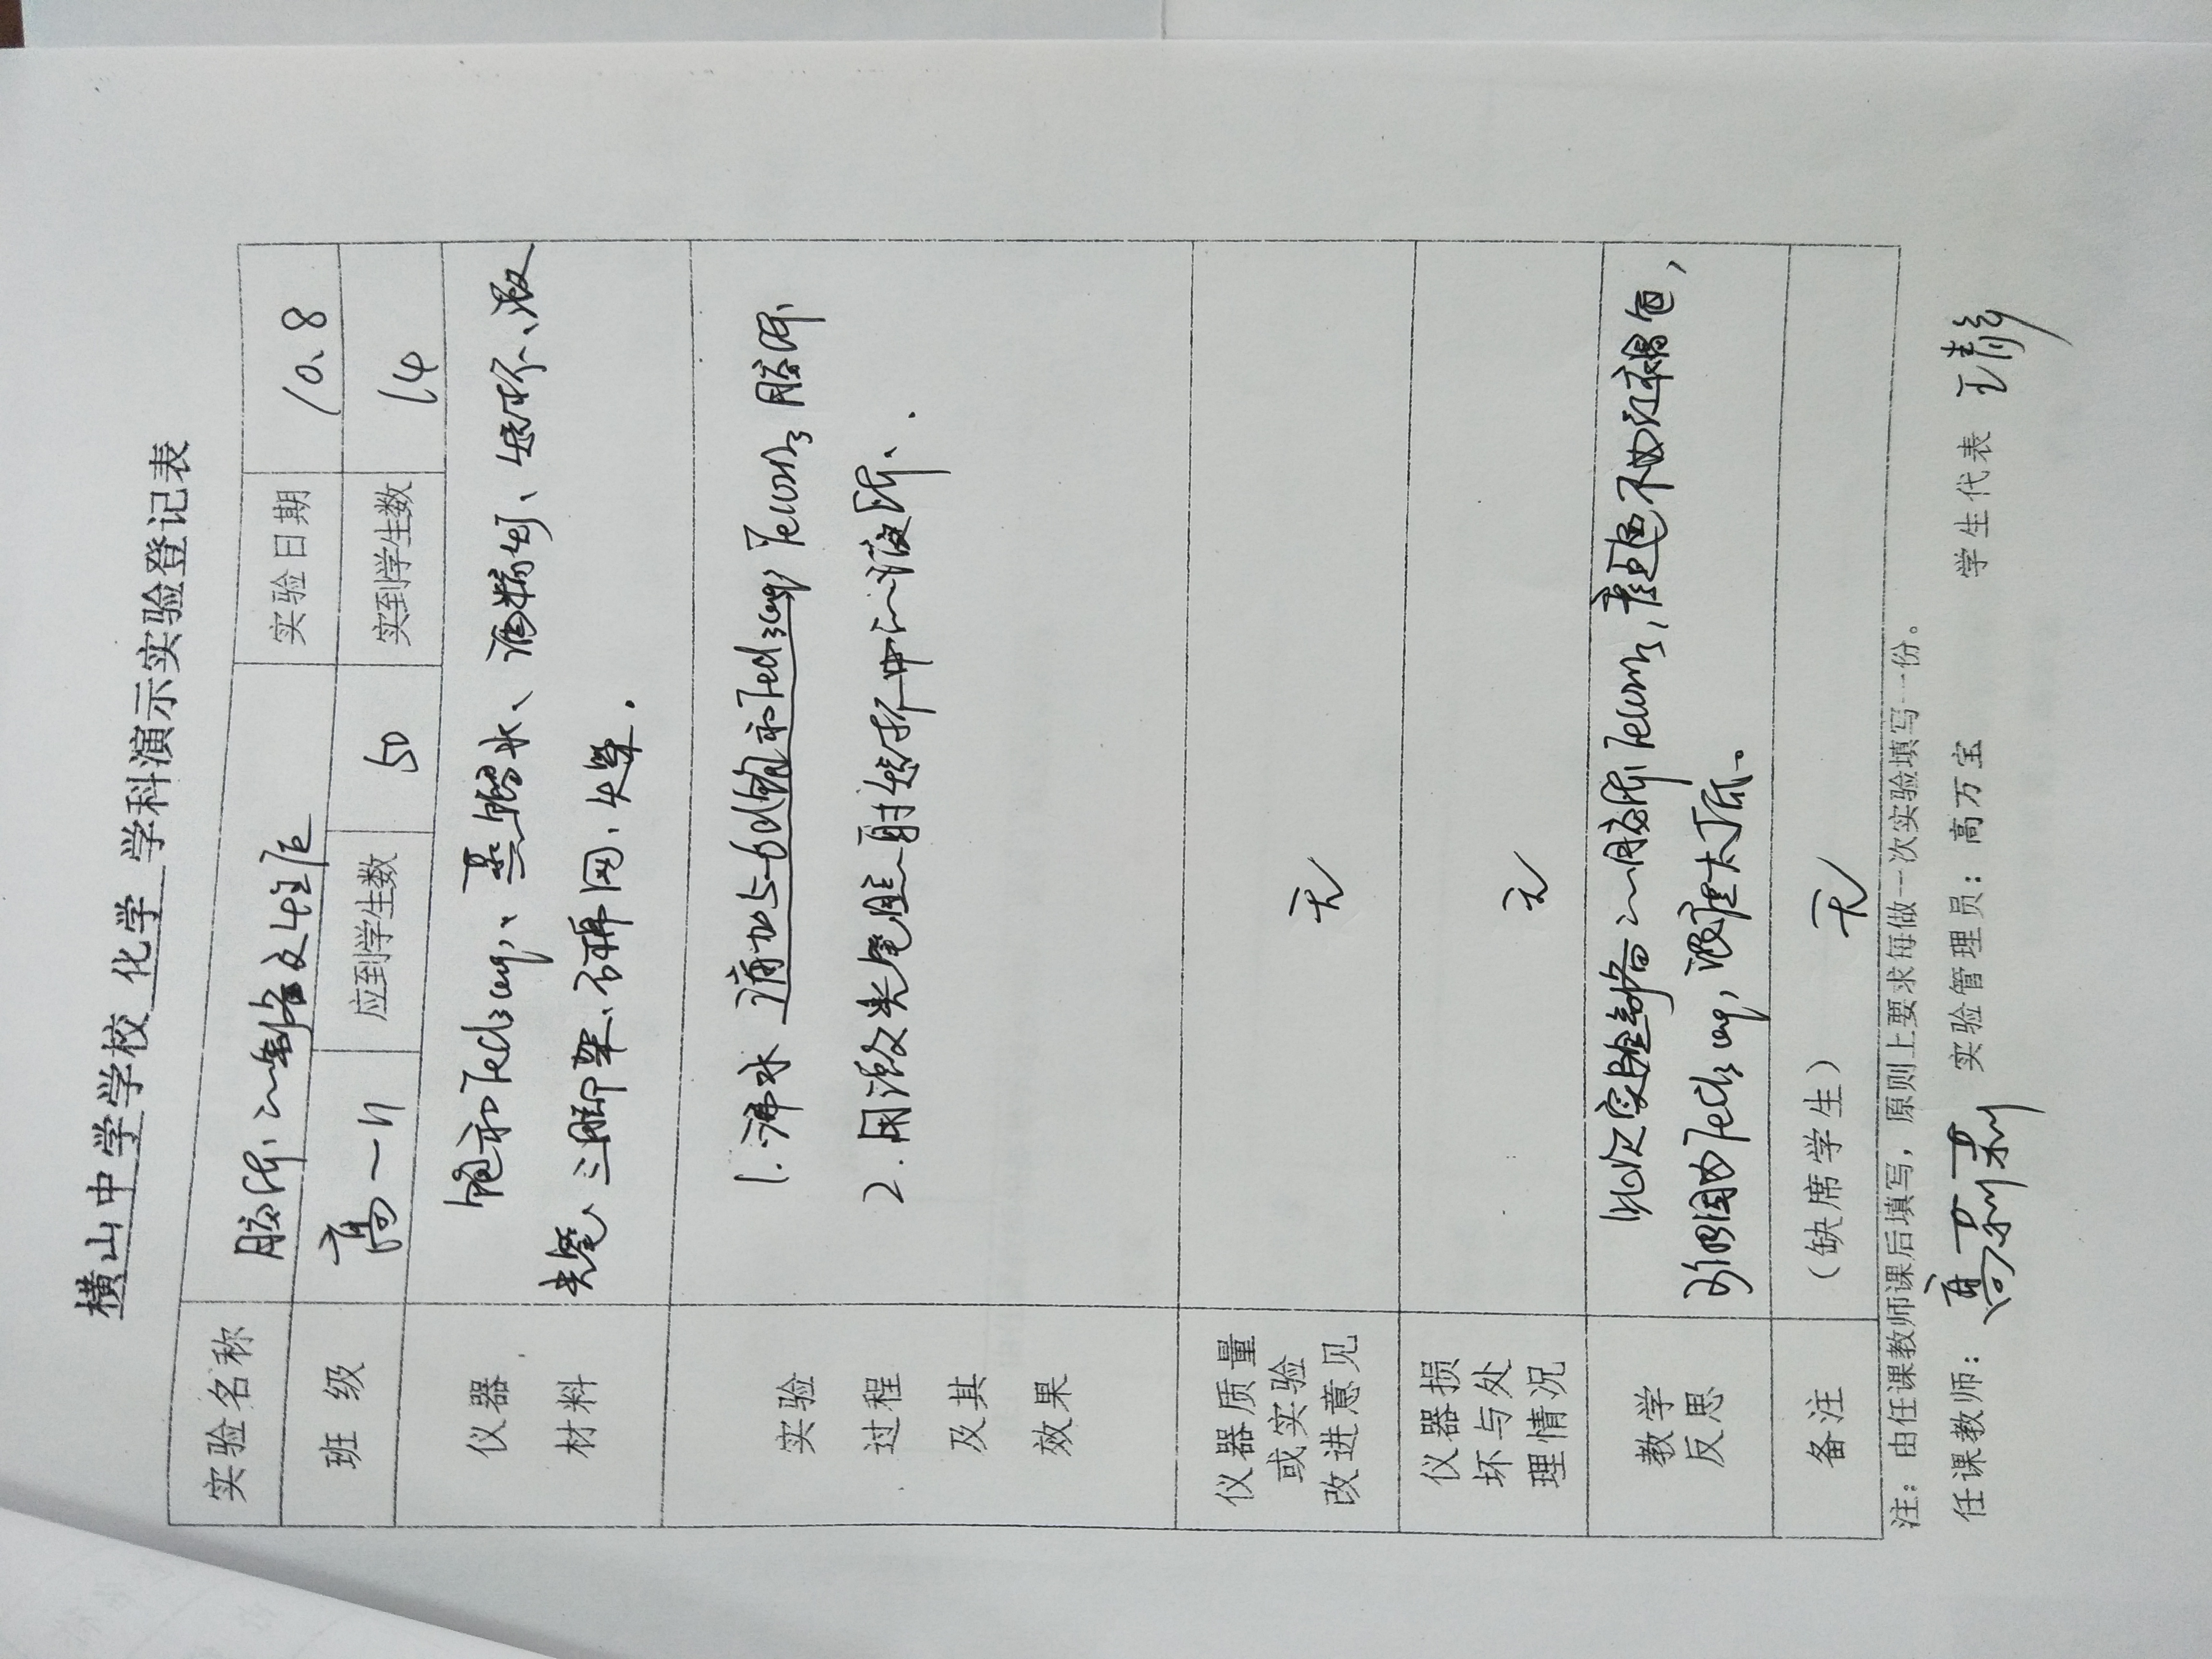 横山中学学校 化学 学科演示实验登记表
实验名称 胶体的制备及性质 实验日期 10.8
班 级 高一11 应到学生数 50 实到学生数 14
仪器 饱和FeCl3(aq)、蒸馏水、酒精灯、烧杯、激
材料 光笔、三脚架、石棉网、火柴.
实验 1.沸水 滴加5-6d饱和FeCl3(aq) Fe(OH)3胶体
过程 2.用激发光笔照射烧杯中的液体.
及其
效果
仪器质量
或实验 无
改进意见
仪器损
坏与处 无
理情况
教学 此次实验制备的胶体Fe(OH)3,颜色不如红褐色,
反思 原因为FeCl3(aq),浓度太低。
备注 (缺席学生) 无
注:由任课教师课后填写,原则上要求每做一次实验填写一份。
任课教师: 高莉莉 实验管理员:高万宝 学生代表 王静